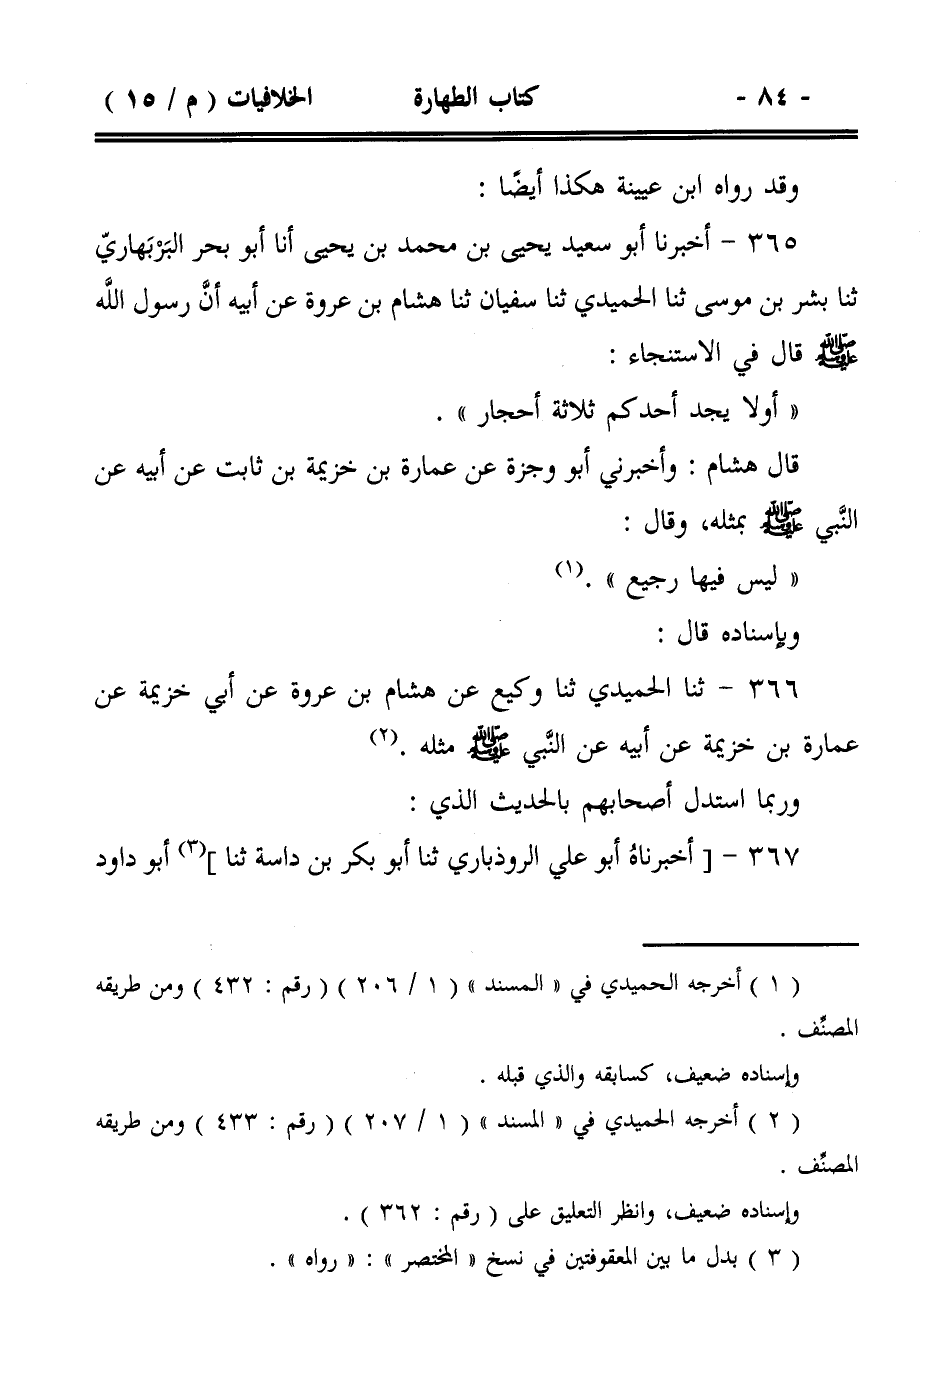 - ٨٤ - كتاب الطهارة الخلافيات ( م / ١٥ )
وقد رواه ابن عيينة هكذا أيضًا :
٣٦٥ - أخبرنا أبو سعيد يحيى بن محمد بن يحيى أنا أبو بحر البَرْبَهاريّ
ثنا بشر بن موسى ثنا الحميدي ثنا سفيان ثنا هشام بن عروة عن أبيه أنَّ رسول الله
ﷺ قال في الاستنجاء :
« أولا يجد أحدكم ثلاثة أحجار » .
قال هشام : وأخبرني أبو وجزة عن عمارة بن خزيمة بن ثابت عن أبيه عن
النَّبي ﷺ بمثله، وقال :
« ليس فيها رجيع » .(١)
وبإسناده قال :
٣٦٦ - ثنا الحميدي ثنا وكيع عن هشام بن عروة عن أبي خزيمة عن
عمارة بن خزيمة عن أبيه عن النَّبي ﷺ مثله .(٢)
وربما استدل أصحابهم بالحديث الذي :
٣٦٧ - [ أخبرناهُ أبو علي الروذباري ثنا أبو بكر بن داسة ثنا ](٣) أبو داود
( ١ ) أخرجه الحميدي في « المسند » ( ١ / ٢٠٦ ) ( رقم : ٤٣٢ ) ومن طريقه
المصنِّف .
وإسناده ضعيف، كسابقه والذي قبله .
( ٢ ) أخرجه الحميدي في « المسند » ( ١ / ٢٠٧ ) ( رقم : ٤٣٣ ) ومن طريقه
المصنِّف .
وإسناده ضعيف، وانظر التعليق على ( رقم : ٣٦٢ ) .
( ٣ ) بدل ما بين المعقوفتين في نسخ « المختصر » : « رواه » .